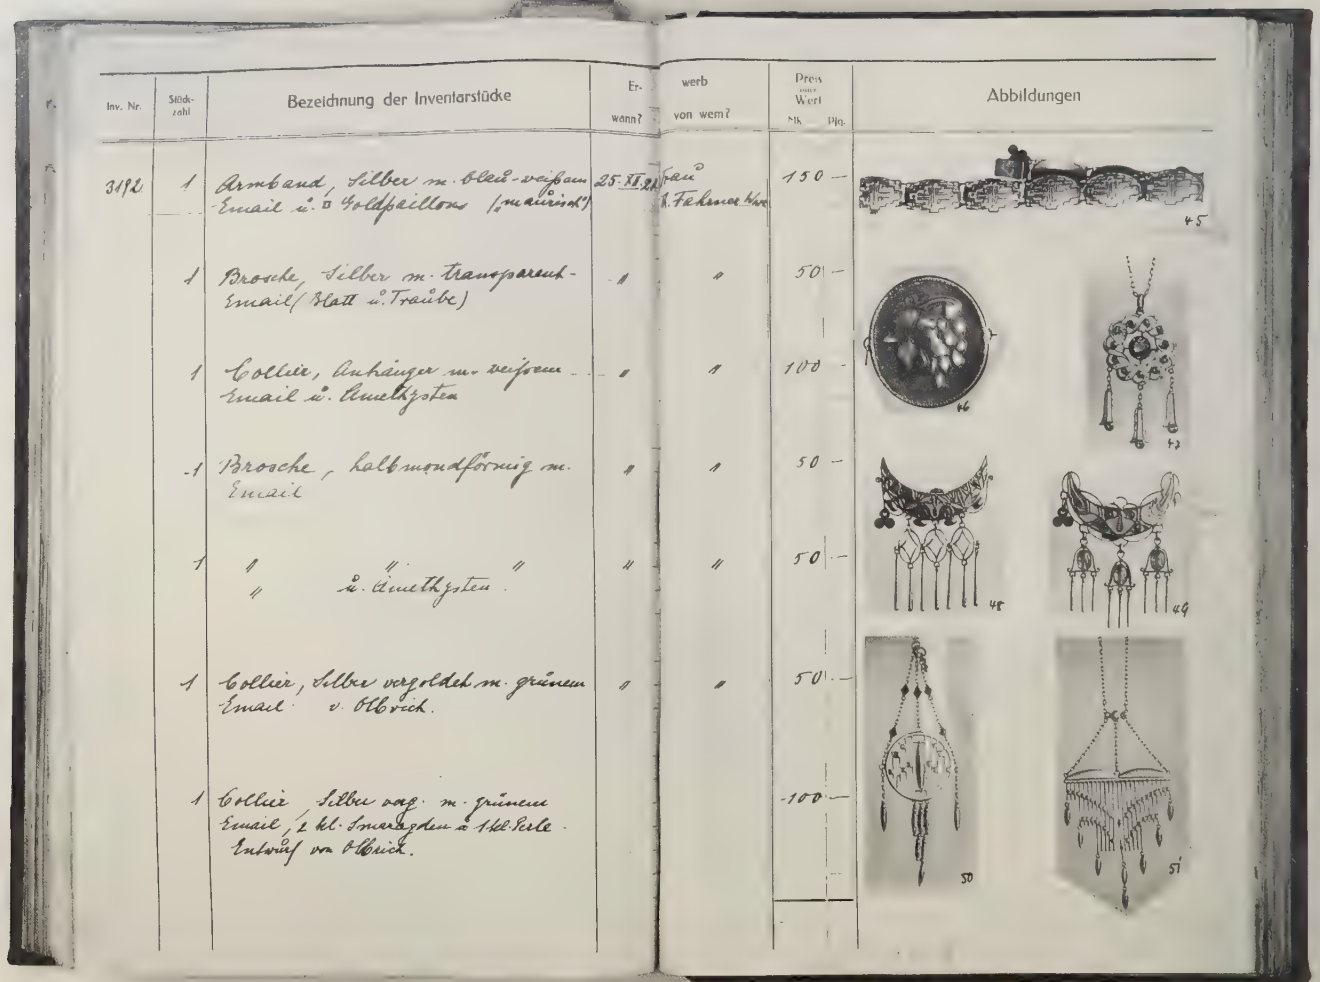 Inv. Nr.
Stück-
zahl
Bezeichnung der Inventarstücke
Er-
wann?
werb
von wem?
Preis
oder
Wert
Mk. Pfg.
Abbildungen
3192 1 Armband, Silber m. blau-weißem 25. XI. 21 Frau 150 —
Email u. Goldpaillons ("maurisch") Fahrner Wwe
45
1 Brosche, Silber m. transparent- " " 50 —
Email (Blatt u. Traube)
46
1 Collier, Anhänger m. weißem " " 100 —
Email u. Amethysten
47
1 Brosche, halbmondförmig m. " " 50 —
Email
48
1 " " " " " 50 —
" u. Amethysten.
49
1 Collier, Silber vergoldet m. grünem " " 50 —
Email v. Olbrich.
50
1 Collier, Silber verg. m. grünem 100 —
Email, 2 kl. Smaragden u 1 kl. Perle.
Entwurf von Olbrich.
51